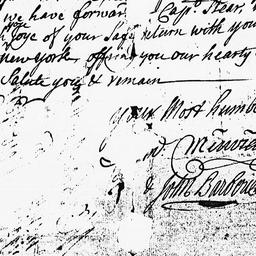 we have forwar. Capt. Stear,
joye of your safe return with your
new york offring you our hearty
Salute you & remain
your Most humb
Minvie
& John Barbarie